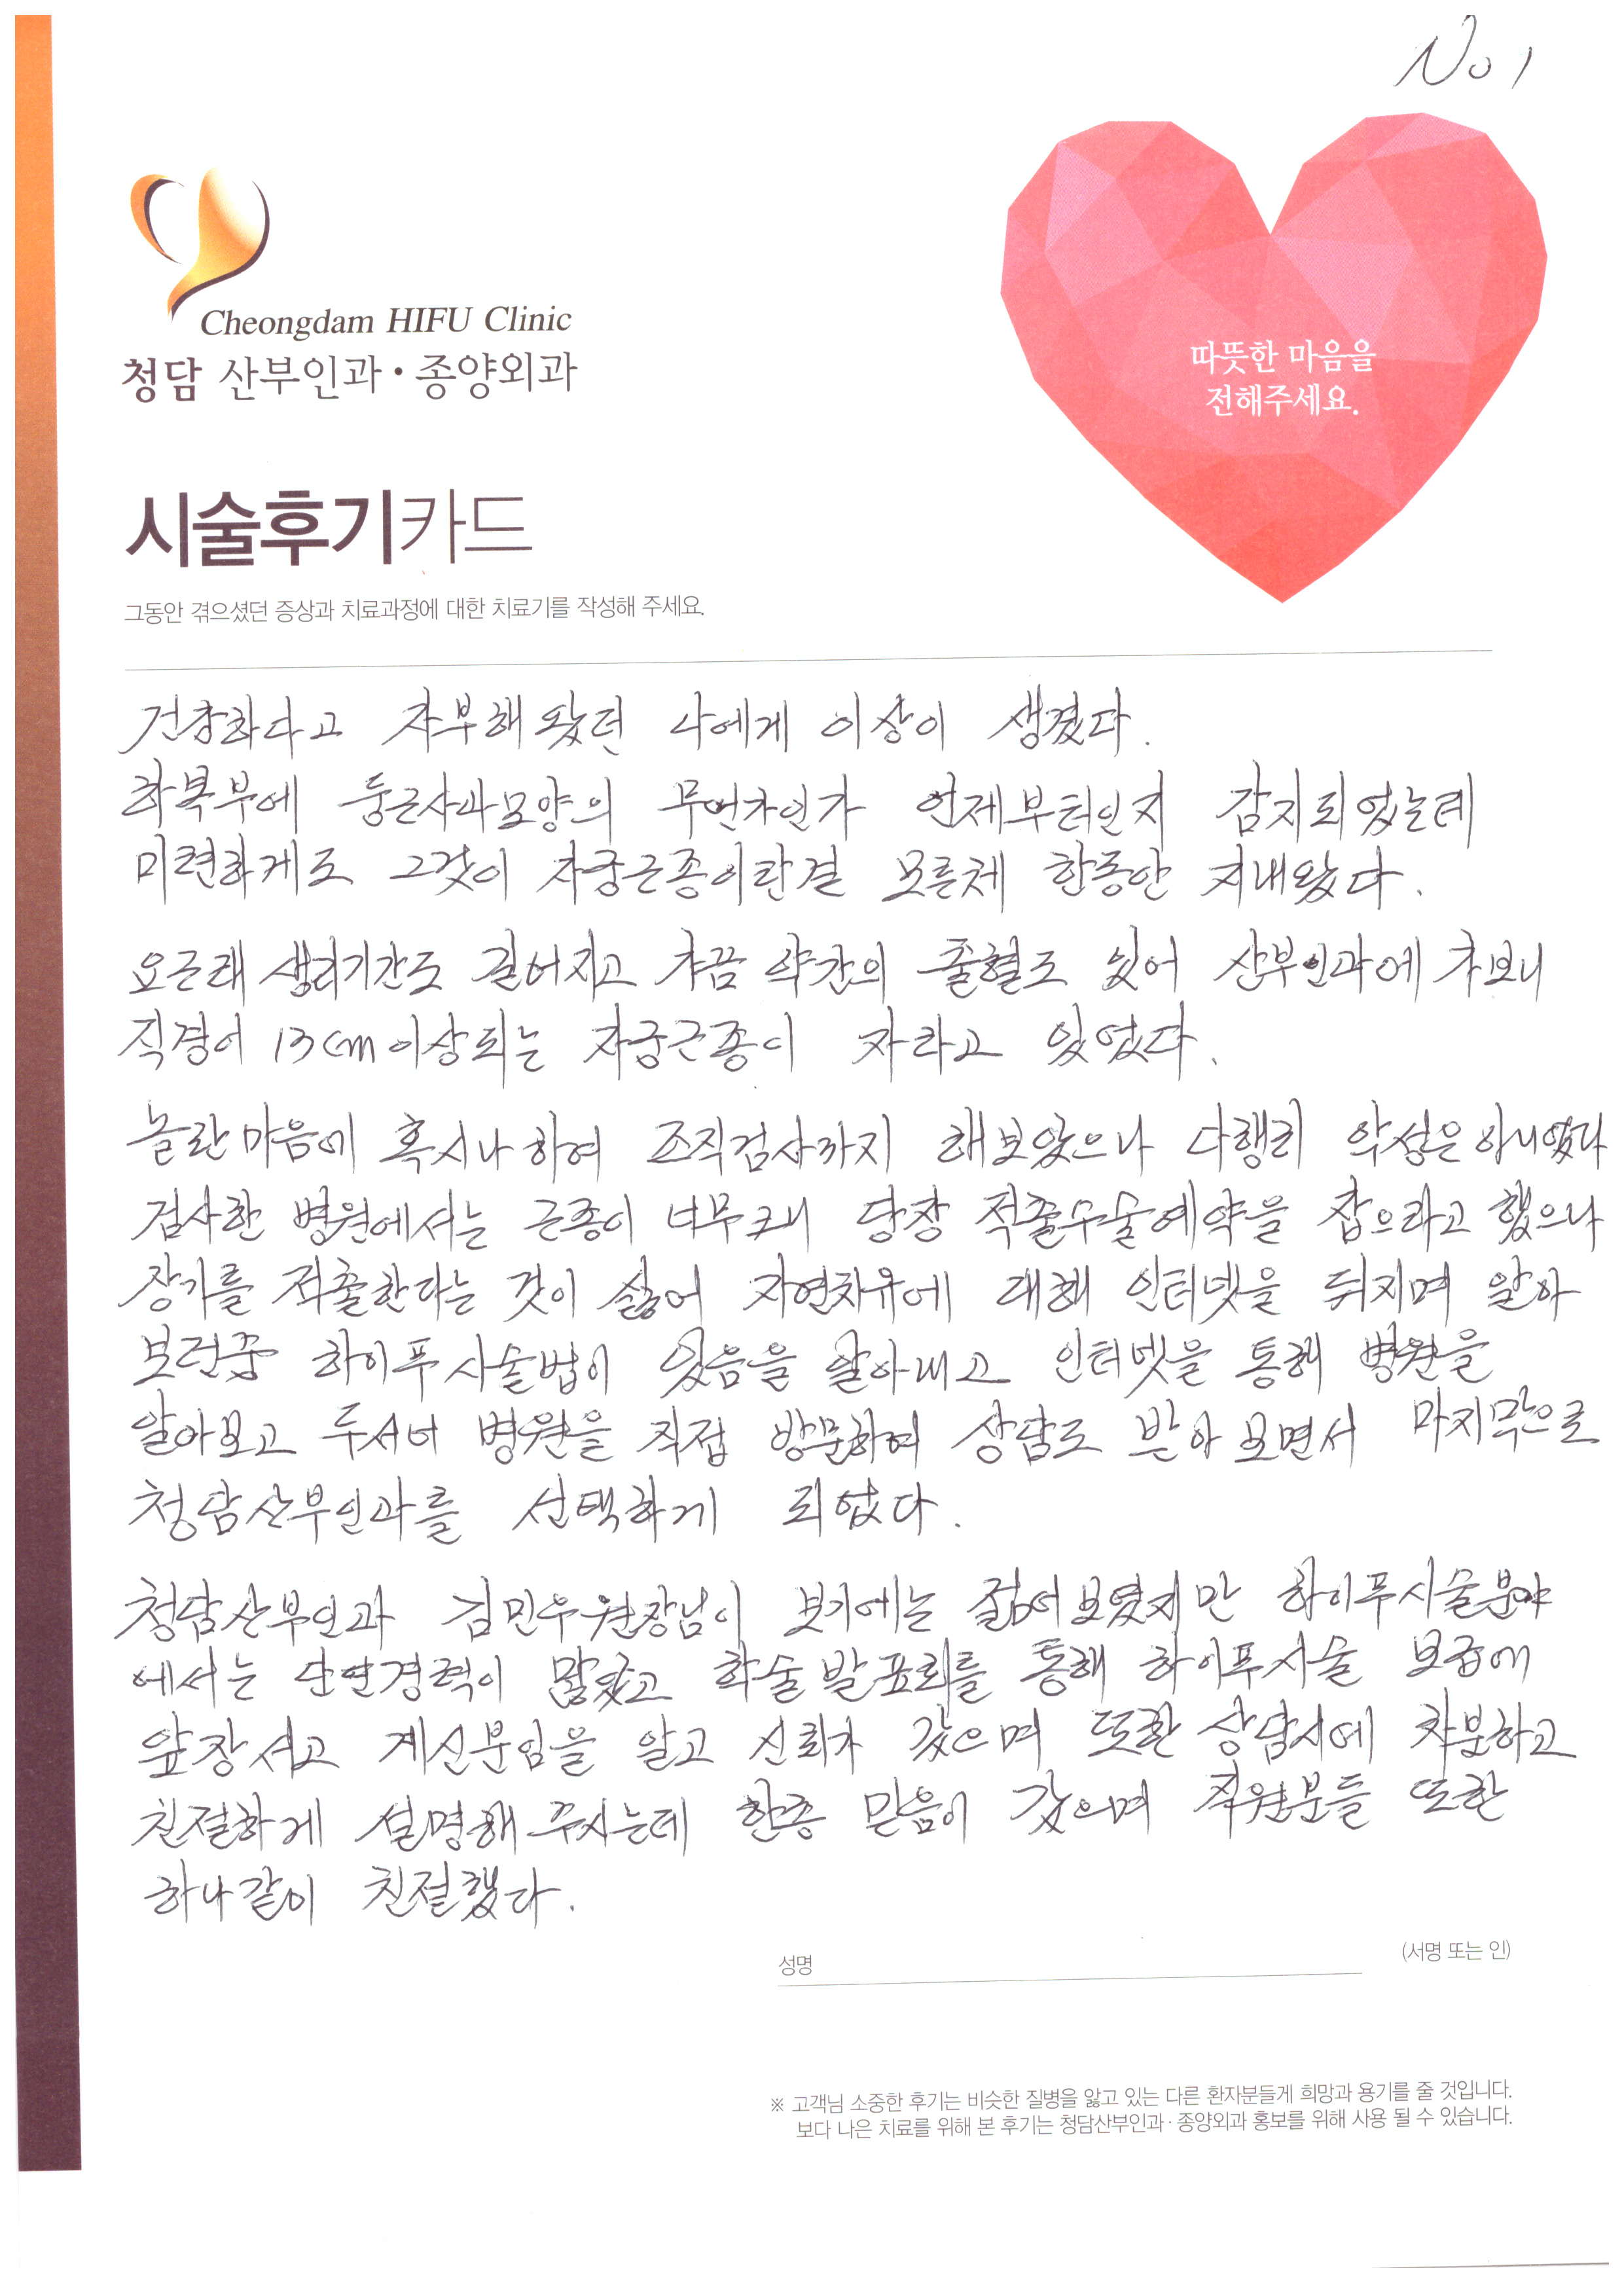 No 1
Cheongdam HIFU Clinic
청담 산부인과·종양외과
따뜻한 마음을
전해주세요.
시술후기카드
그동안 겪으셨던 증상과 치료과정에 대한 치료기를 작성해 주세요.
건강하다고 자부해 왔던 나에게 이상이 생겼다.
하복부에 둥근사과모양의 무언가인가 언제부터인지 감지되었는데
미련하게도 그것이 자궁근종이란걸 모른체 한동안 지내왔다.
요근래 생리기간도 길어지고 가끔 약간의 출혈도 있어 산부인과에 가보니
직경이 13cm이상되는 자궁근종이 자라고 있었다.
놀란마음에 혹시나하여 조직검사까지 해보았으나 다행히 악성은 아니였다
검사한 병원에서는 근종이 너무크니 당장 적출수술예약을 잡으라고 했으나
장기를 적출한다는 것이 싫어 자연치유에 대해 인터넷을 뒤지며 알아
보던중 하이푸시술법이 있음을 알아내고 인터넷을 통해 병원을
알아보고 두서너 병원을 직접 방문하여 상담도 받아 보면서 마지막으로
청담산부인과를 선택하게 되었다.
청담산부인과 김민우원장님이 보기에는 젊어보였지만 하이푸시술분야
에서는 단연경력이 많았고 학술발표회를 통해 하이푸시술 보급에
앞장서고 계신분임을 알고 신뢰가 갔으며 또한 상담시에 차분하고
친절하게 설명해 주시는데 한층 믿음이 갔으며 직원분들 또한
하나같이 친절했다.
성명
(서명 또는 인)
※ 고객님 소중한 후기는 비슷한 질병을 앓고 있는 다른 환자분들게 희망과 용기를 줄 것입니다.
보다 나은 치료를 위해 본 후기는 청담산부인과·종양외과 홍보를 위해 사용 될 수 있습니다.